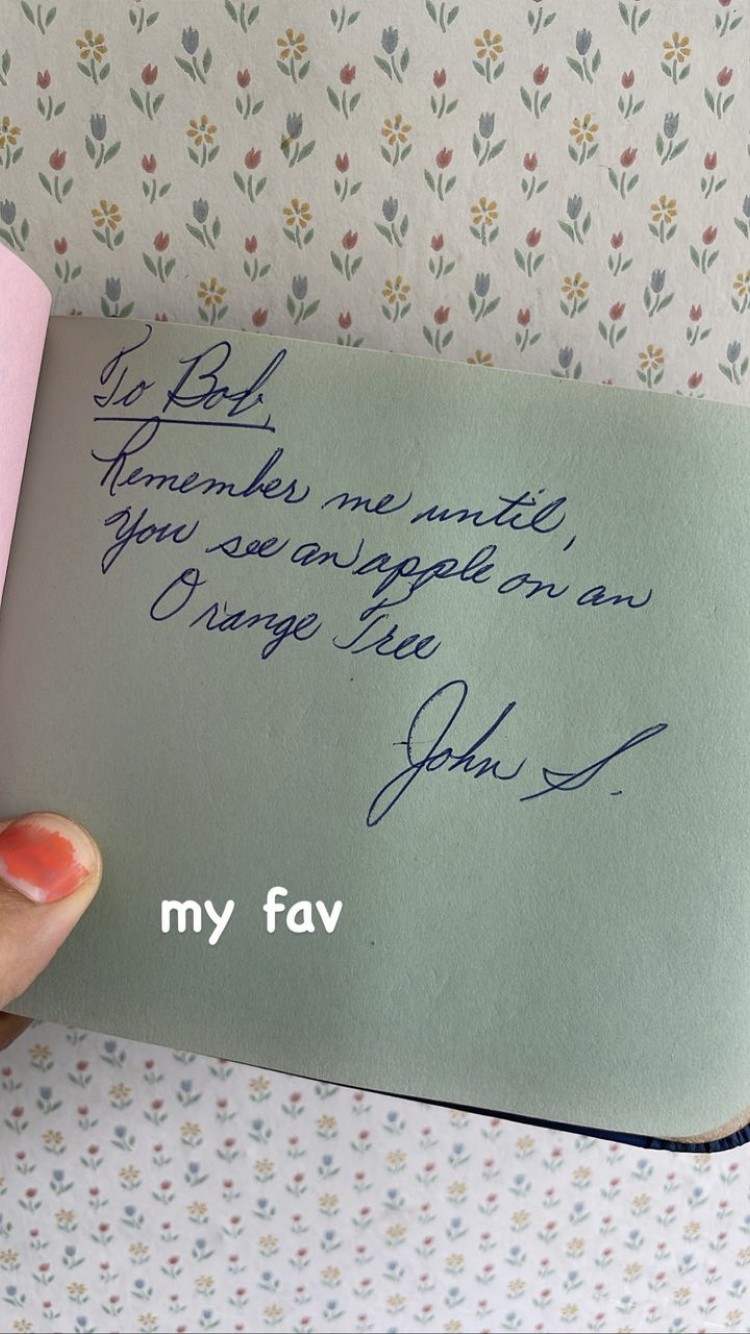 To Bob,
Remember me until,
You see an apple on an
Orange Tree
John S.
my fav